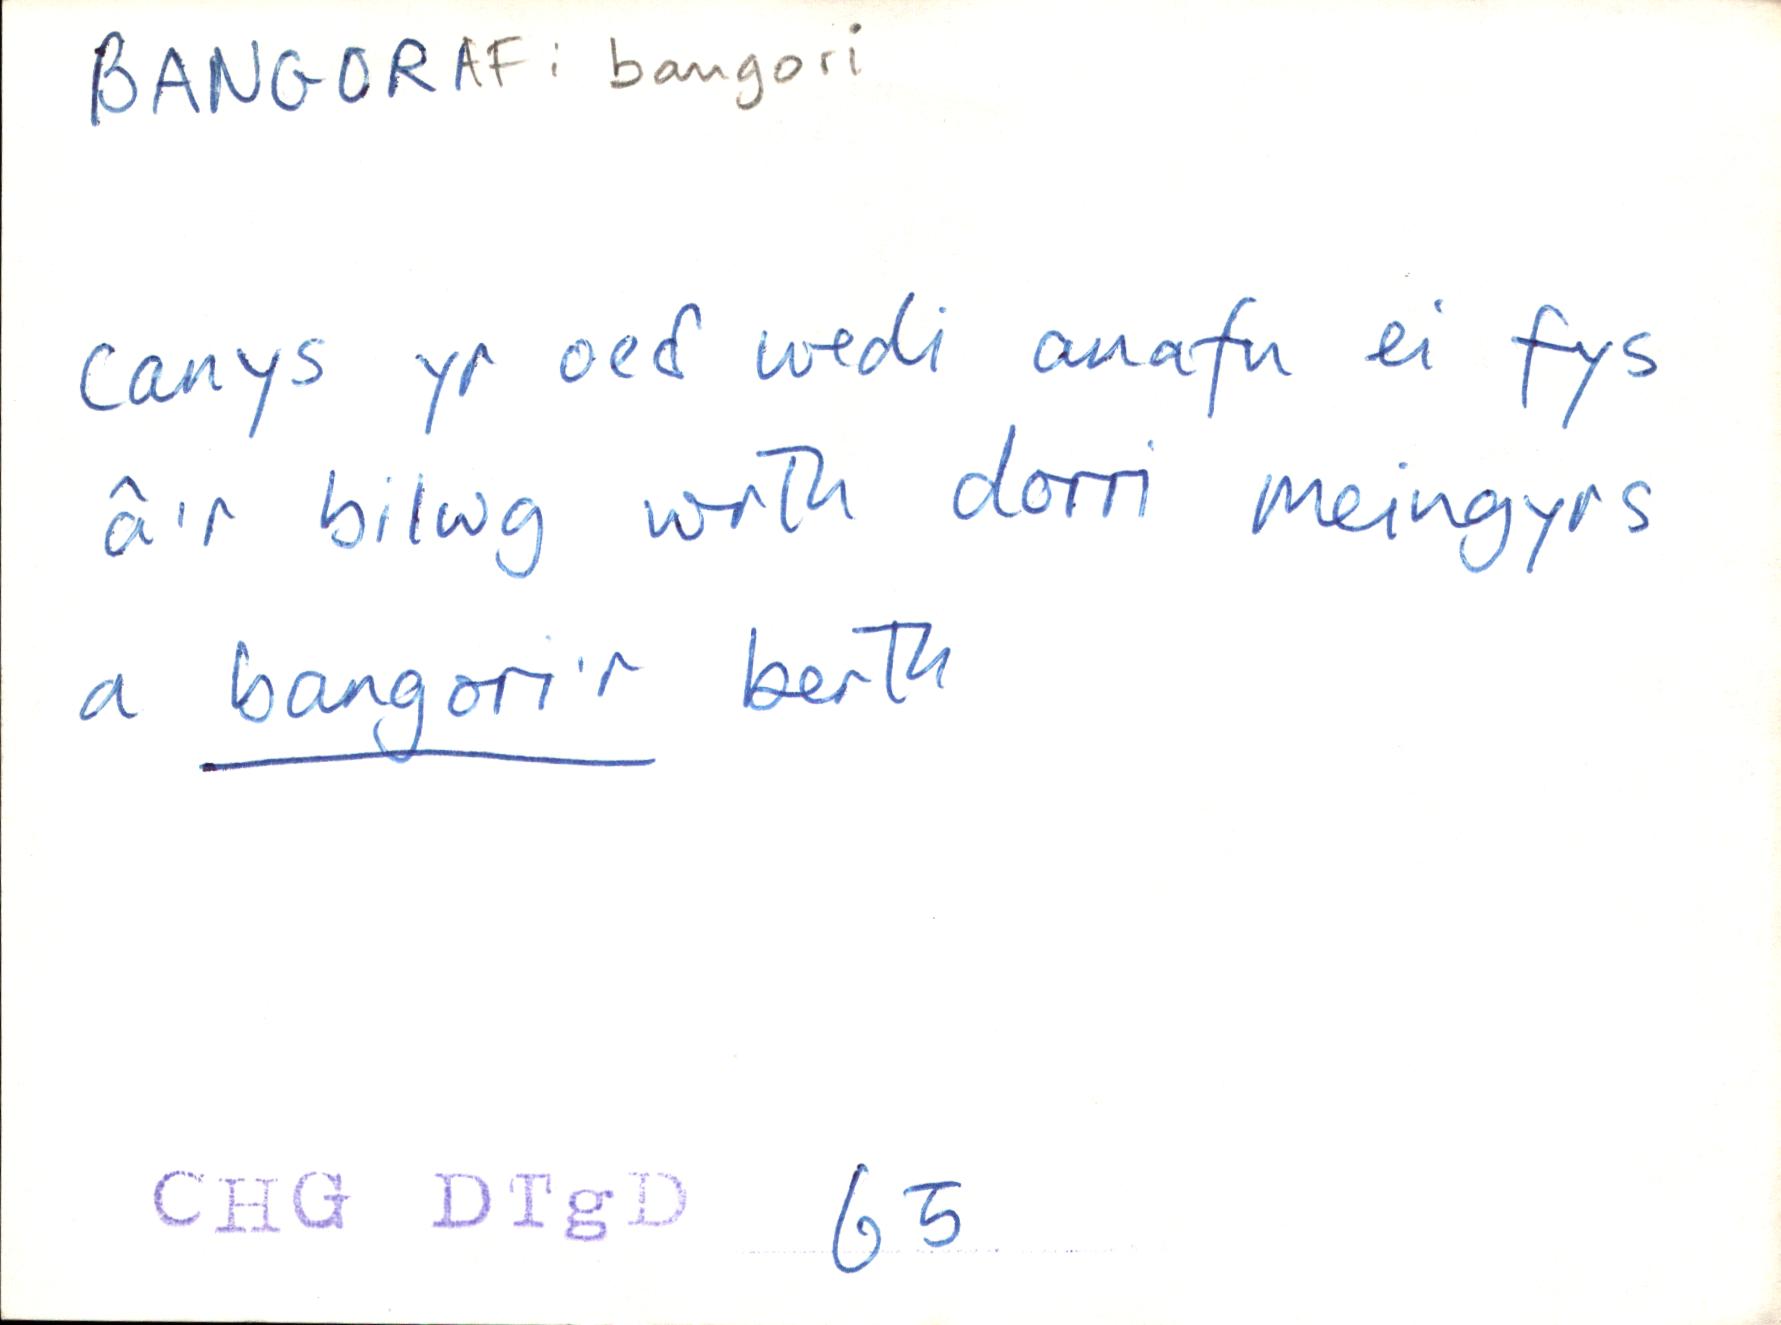 BANGORAF: bangori
canys yr oeđ wedi anafu ei fys
â'r bilwg wrth dorri meingyrs
a bangori'r berth
CHG DTgD 65